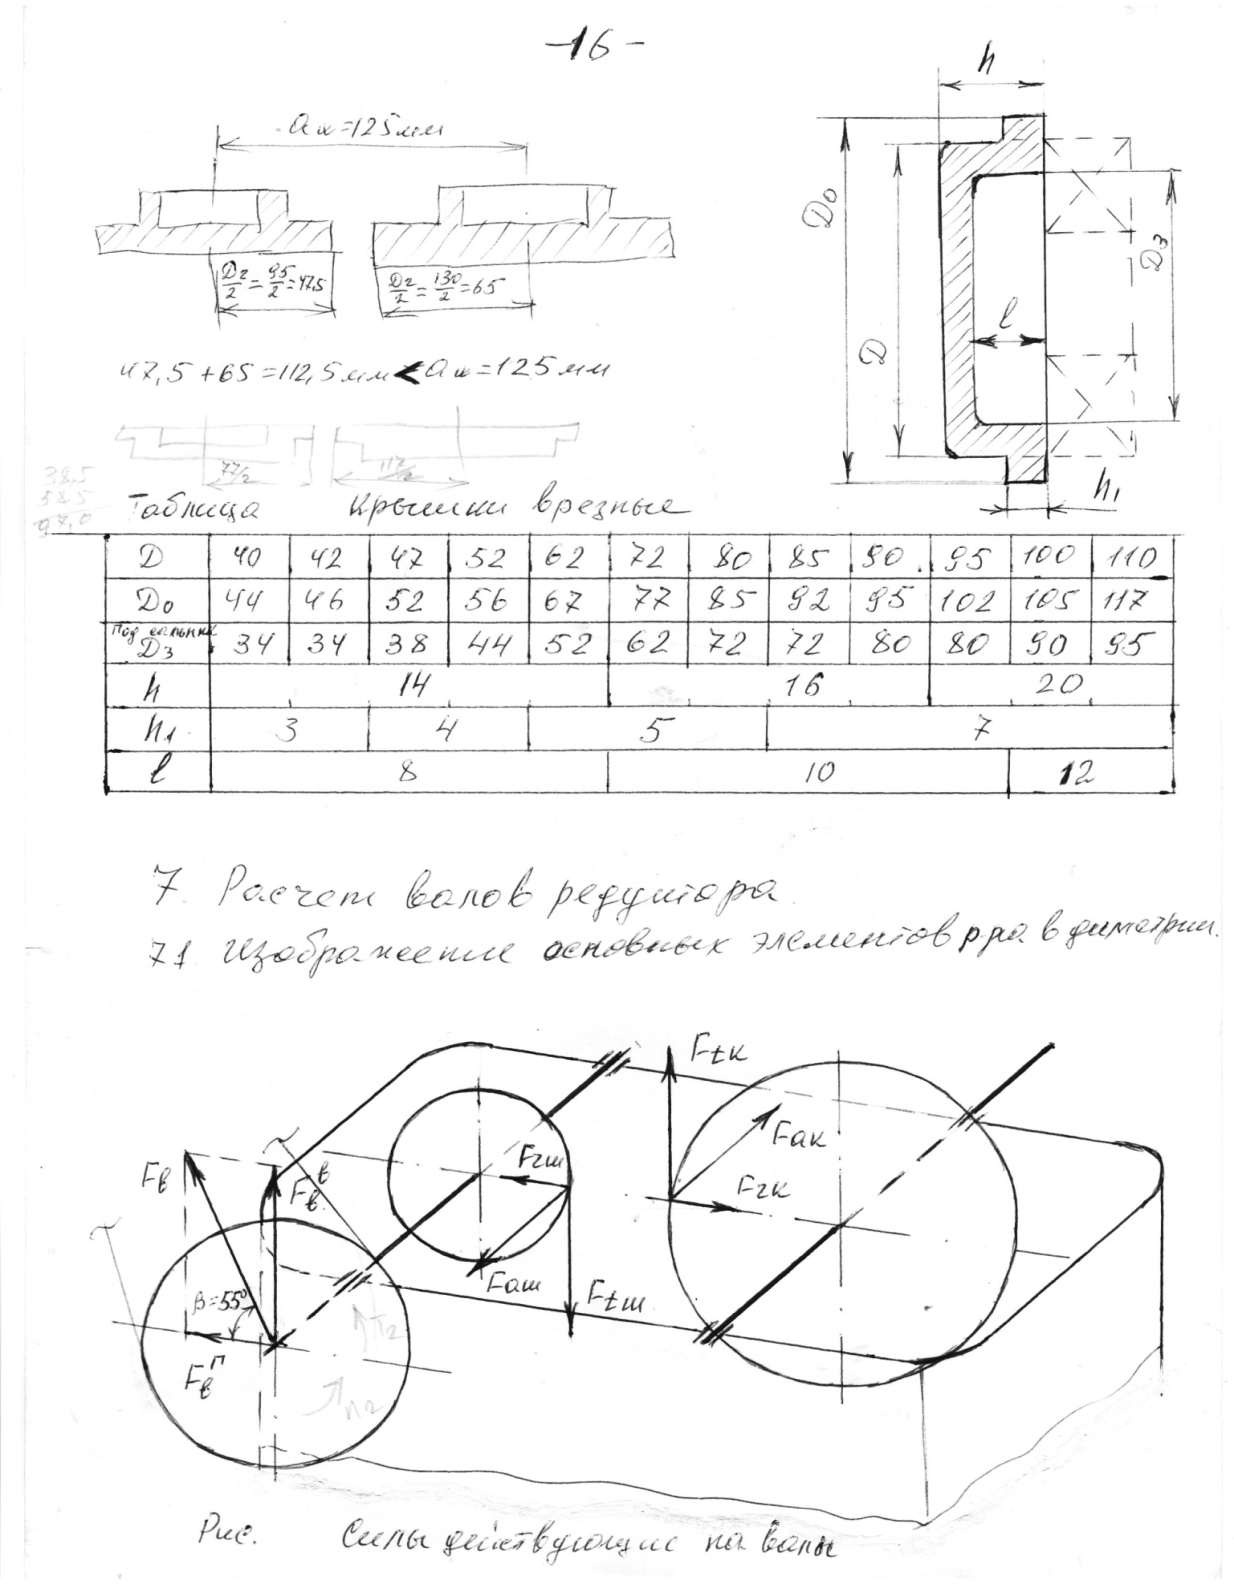 -16-
h
aw=125мм
D0
D
D3
l
h1
D2/2=95/2=47,5
D2/2=130/2=65
47,5+65=112,5мм<aw=125мм
77/2
117/2
38,5
58,5
97,0
Таблица Крышки врезные
D 40 42 47 52 62 72 80 85 90 95 100 110
D0 44 46 52 56 67 77 85 92 95 102 105 117
Под сальник
D3 34 34 38 44 52 62 72 72 80 80 90 95
h 14 16 20
h1 3 4 5 7
l 8 10 12
7. Расчет валов редуктора
7.1 Изображение основных элементов р-ра в диметрии.
Ftк
Faк
Frк
Fв
Fвв
Frш
Faш
Ftш
β=55°
Fвп
T2
n2
Рис. Силы действующие на валы